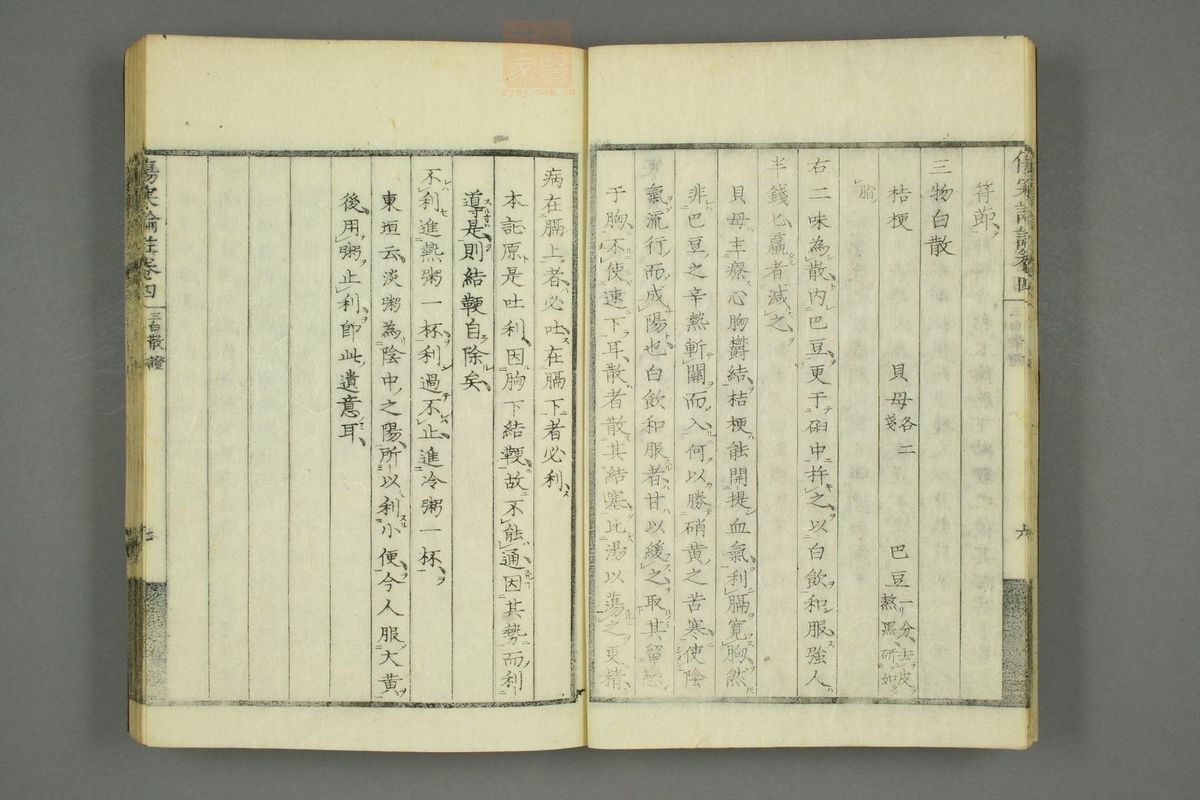 符節
三物白散
桔梗 貝母各二錢 巴豆一分去皮熬黑研如
脂
右二味為散內巴豆更于臼中杵之以白飲和服強人
半錢匕羸者減之
貝母主療心胸鬱結桔梗能開提血氣利膈寬胸然
非巴豆之辛熱斬關而入何以勝硝黃之苦寒使陰
氣流行而成陽也白飲和服者甘以緩之取其留戀
于胸不使速下耳散者散其結塞比湯以蕩之更精
病在膈上者必吐在膈下者必利
本証原是吐利因胸下結鞕故不能通因其勢而利
導是則結鞕自除矣
不利進熱粥一杯利過不止進冷粥一杯
東垣云淡粥為陰中之陽所以利小便今人服大黃
後用粥止利即此遺意耳
傷寒論註卷四
三白散證